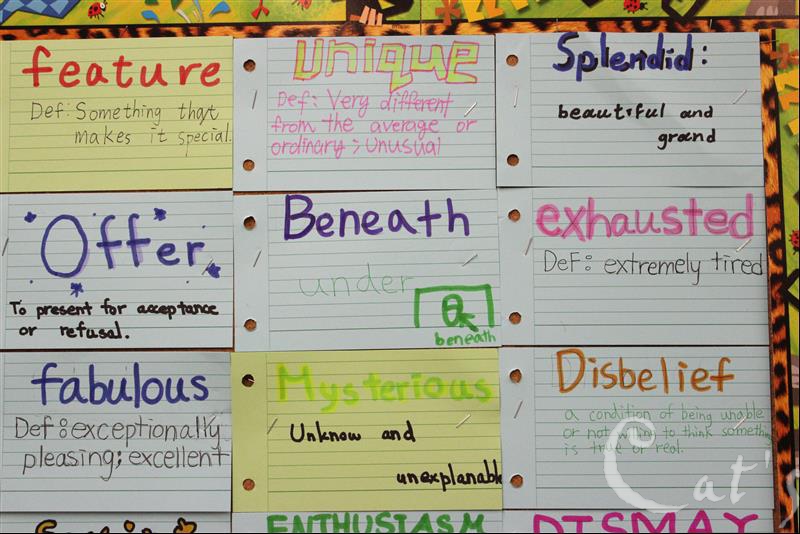 feature
Def: Something that
makes it special.
unique
Def: Very different
from the average or
ordinary; Unusual
Splendid:
beautiful and
grand
Offer
To present for acceptance
or refusal.
Beneath
under
beneath
exhausted
Def: extremely tired
fabulous
Def: exceptionally
pleasing; excellent
Mysterious
Unknow and
unexplanable
Disbelief
a condition of being unable
or not willing to think something
is true or real.
ENTHUSIASM
DISMAY
Cat's